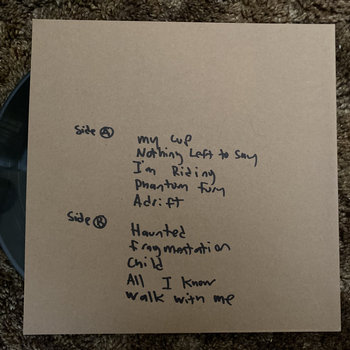 Side A
my cup
Nothing Left to Say
I'm Riding
Phantom Fury
Adrift
Side B
Haunted
Fragmentation
Child
All I Know
walk with me